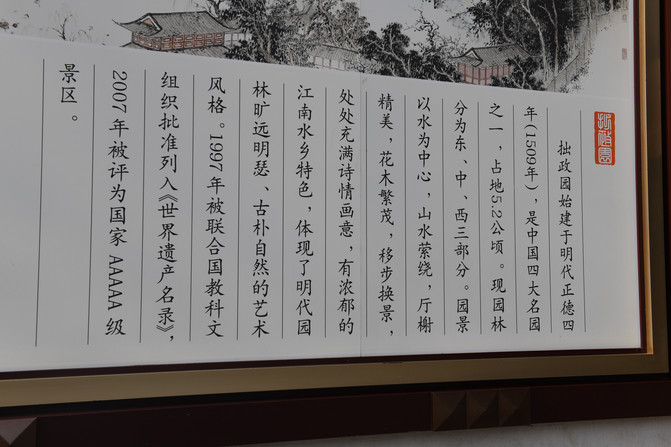 拙政园
拙政园始建于明代正德四
年(1509年)，是中国四大名园
之一，占地5.2公顷。现园林
分为东、中、西三部分。园景
以水为中心，山水萦绕，厅榭
精美，花木繁茂，移步换景，
处处充满诗情画意，有浓郁的
江南水乡特色，体现了明代园
林旷远明瑟、古朴自然的艺术
风格。1997年被联合国教科文
组织批准列入《世界遗产名录》，
2007年被评为国家AAAAA级
景区。